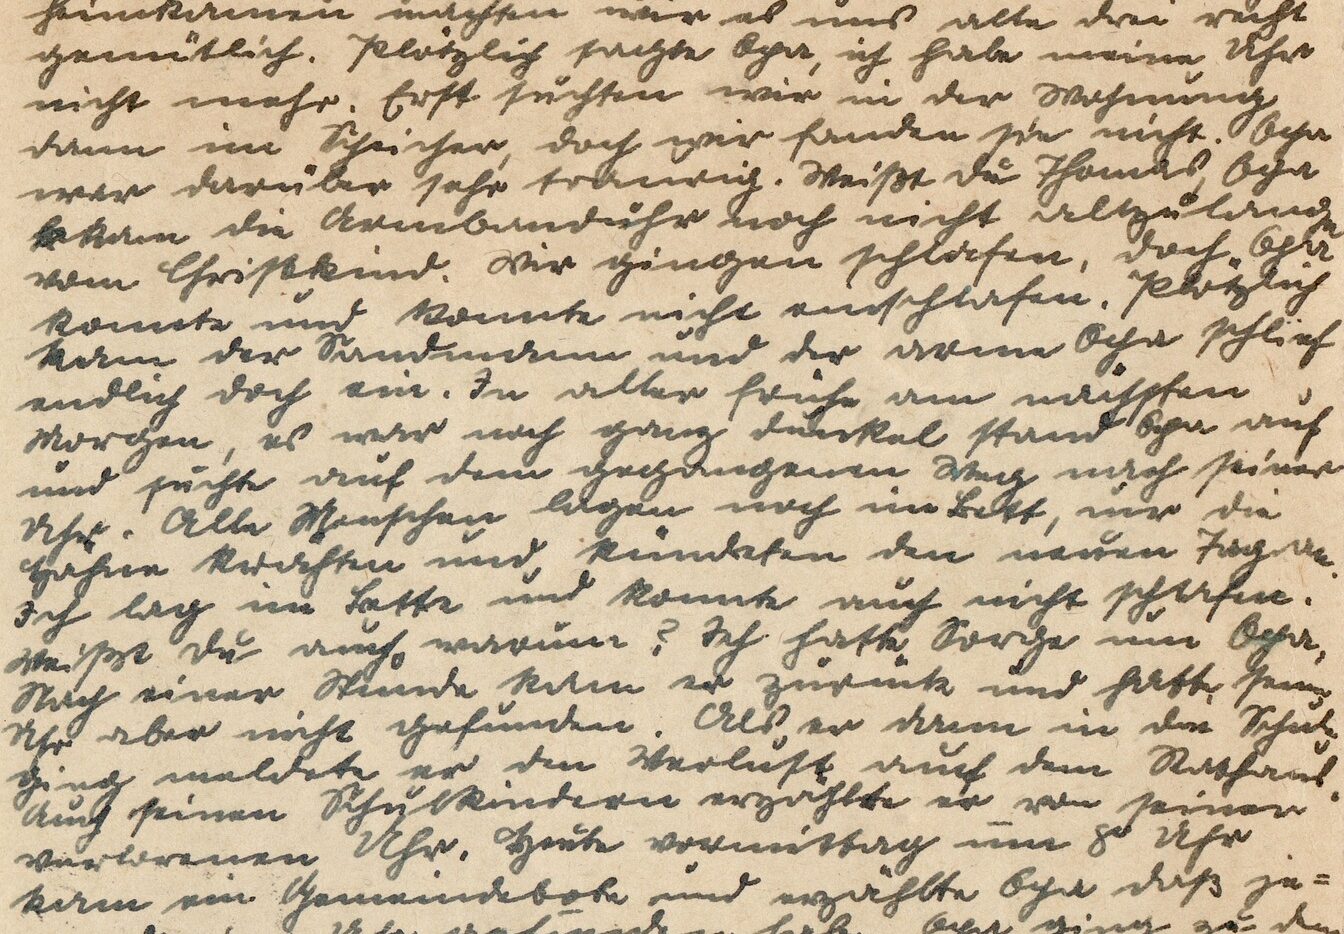 heimkamen machten wir es uns alle drei recht
gemütlich. Plötzlich sagte Opa, ich habe meine Uhr
nicht mehr. Erst suchten wir in der Wohnung
dann im Speicher, doch wir fanden sie nicht. Opa
war darüber sehr traurig. Weißt du Thomas, Opa
bekam die Armbanduhr noch nicht allzulange
vom Christkind. Wir gingen schlafen, doch Opa
konnte und konnte nicht einschlafen. Plötzlich
kam der Sandmann und der arme Opa schlief
endlich doch ein. In aller frühe am nächsten
Morgen, es war noch ganz dunkel stand Opa auf
und suchte auf dem gegangenen Weg nach seiner
Uhr. Alle Menschen lagen noch im Bett, nur die
Hähne krähten und kündeten den neuen Tag an.
Ich lag im Bette und konnte auch nicht schlafen.
Weißt du auch warum? Ich hatte Sorge um Opa.
Nach einer Stunde kam er zurück und hatte seine
Uhr aber nicht gefunden. Als er dann in die Schule
ging meldete er den Verlust auf dem Rathaus.
Auch seinen Schulkindern erzählte er von seiner
verlorenen Uhr. Heute vormittag um 8 Uhr
kam ein Gemeindebote und erzählte Opa daß je=
Uhr gefunden hab. Opa ging zu dem